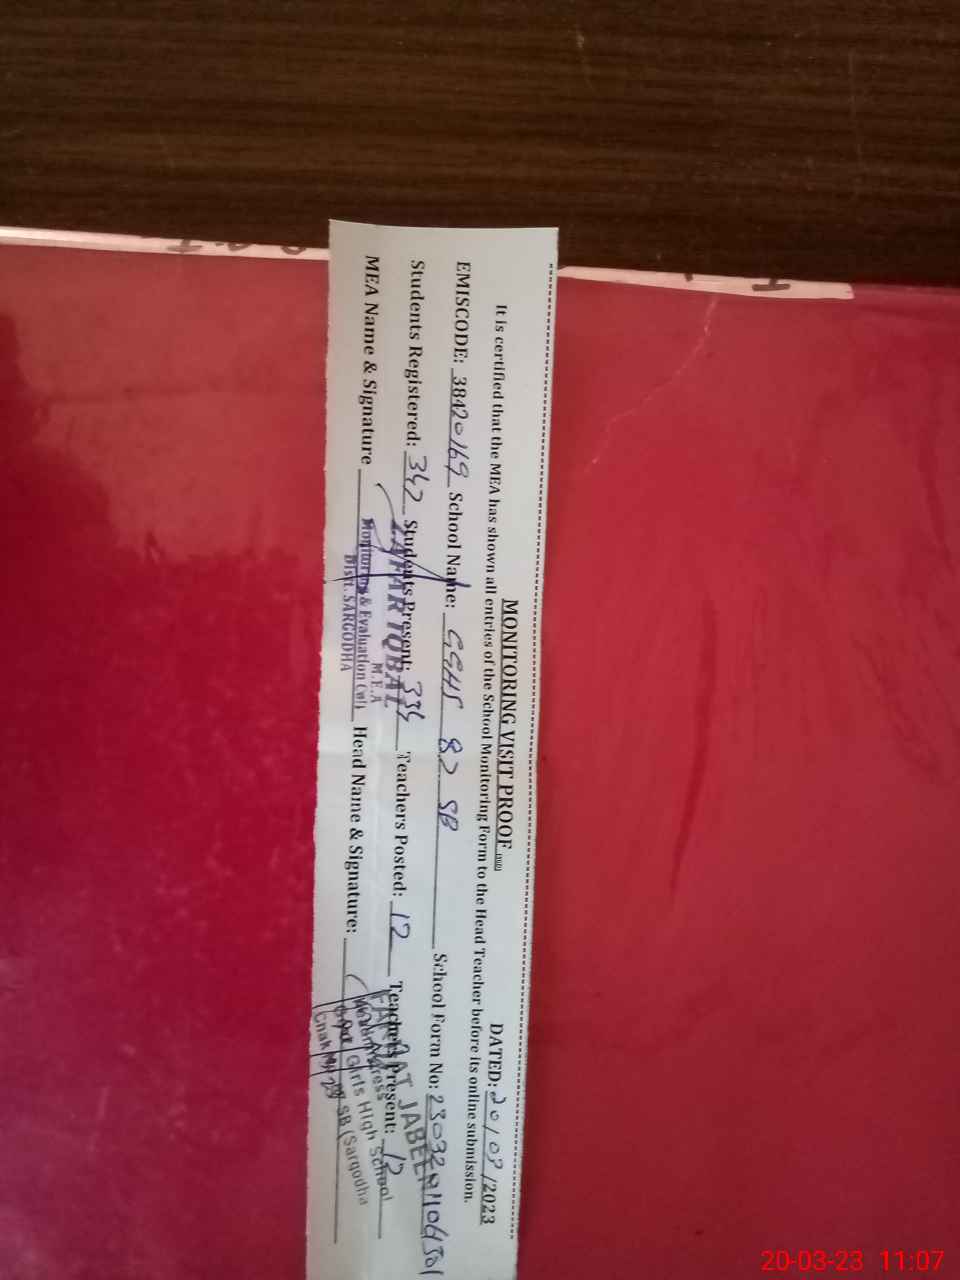 MONITORING VISIT PROOF
DATED: 20/03/2023
It is certified that the MEA has shown all entries of the School Monitoring Form to the Head Teacher before its online submission.
EMISCODE: 38420169 School Name: GGHS 82 SB School Form No:
Students Registered: 342 Students Present: 334 Teachers Posted: 12 Teachers Present: 12
MEA Name & Signature Head Name & Signature:
ZAFAR IQBAL
M.E.A
Monitoring & Evaluation
Distt. SARGODHA
FARHAT JABEEN
Girls High School
Chak SB (Sargodha
20-03-23 11:07